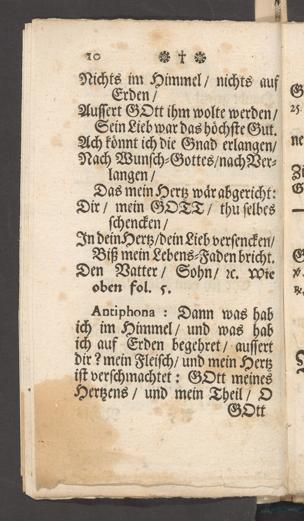 10 ❀ † ❀
Nichts im Himmel / nichts auf
Erden /
Aussert GOtt ihm wolte werden /
Sein Lieb war das höchste Gut.
Ach könnt ich die Gnad erlangen /
Nach Wunsch-Gottes / nach Ver-
langen /
Das mein Hertz wär abgericht:
Dir / mein GOTT / thu selbes
schencken /
In dein Hertz / dein Lieb versencken /
Biß mein Lebens-Faden bricht.
Den Vatter / Sohn / ꝛc. wie
oben fol. 5.
Antiphona : Dann was hab
ich im Himmel / und was hab
ich auf Erden begehret / aussert
dir ? mein Fleisch / und mein Hertz
ist verschmachtet : GOtt meines
Hertzens / und mein Theil / O
GOtt
25.